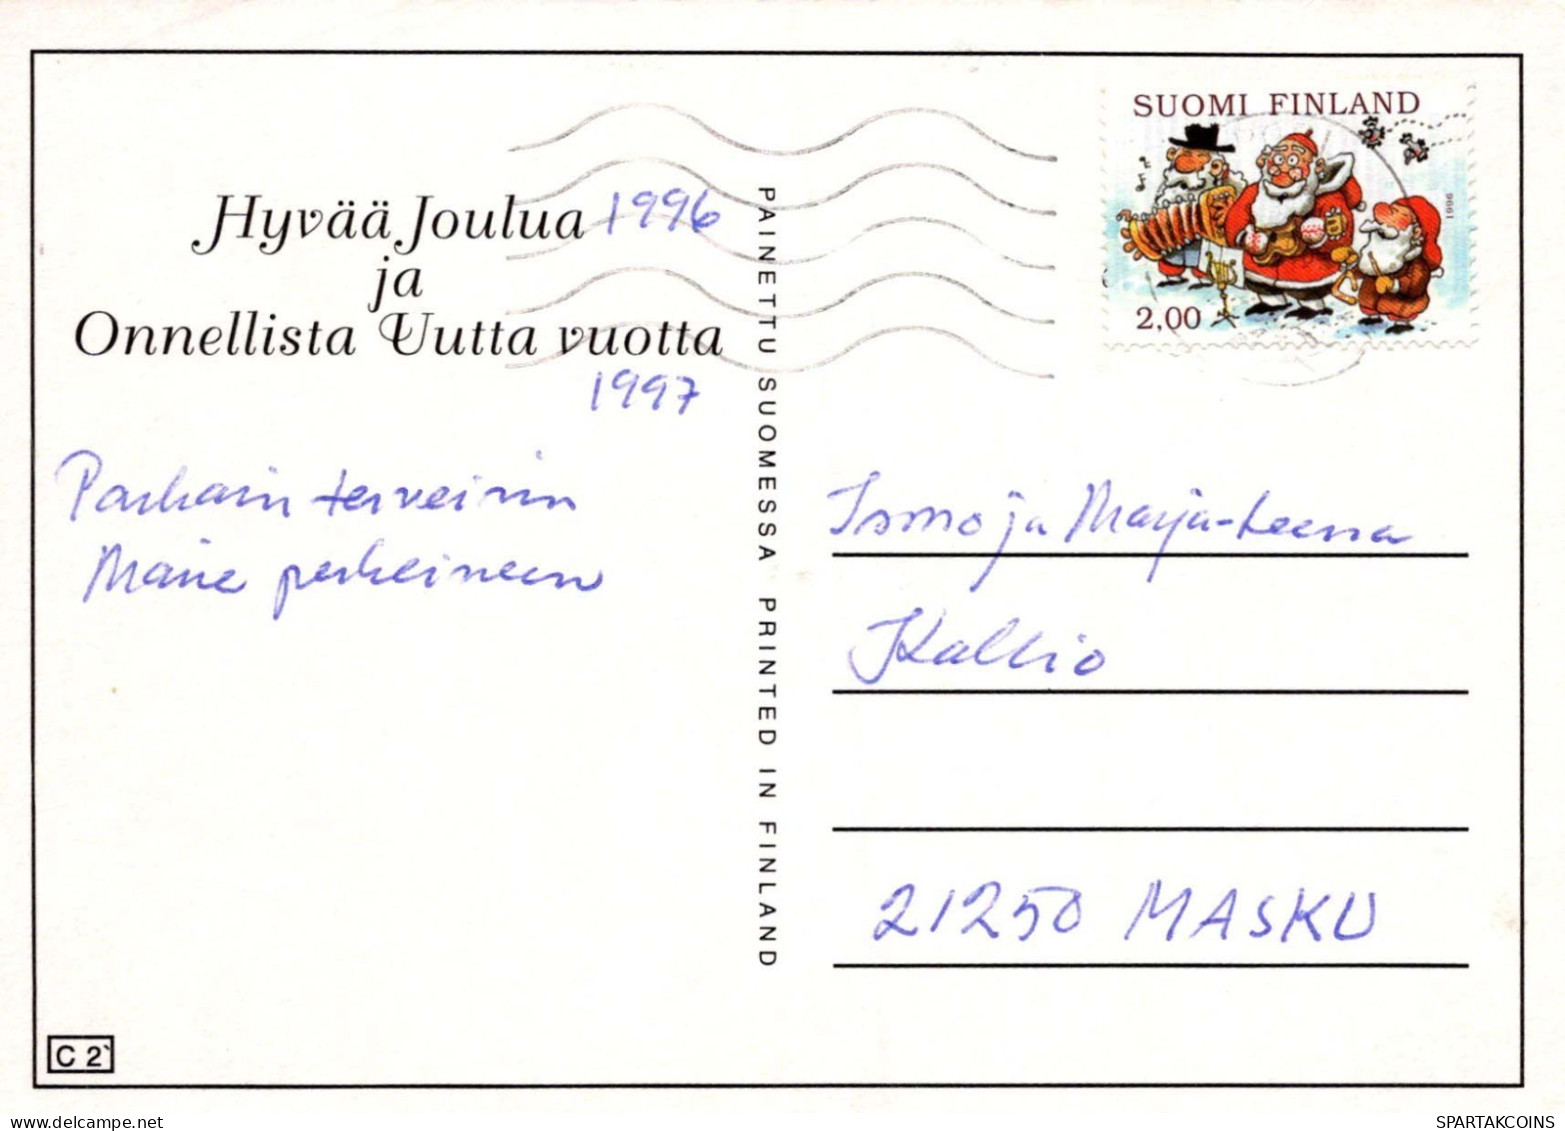 SUOMI FINLAND
1996
2,00
Hyvää Joulua 1996
ja
Onnellista Uutta vuotta
1997
Parhain terveisin
Maire perheineen
PAINETTU SUOMESSA PRINTED IN FINLAND
Ismo ja Marja-Leena
Kallio
21250 MASKU
C 2
SPARTAKCOINS